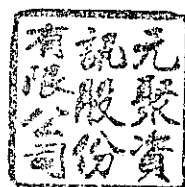 元聚資
訊股份
有限公司